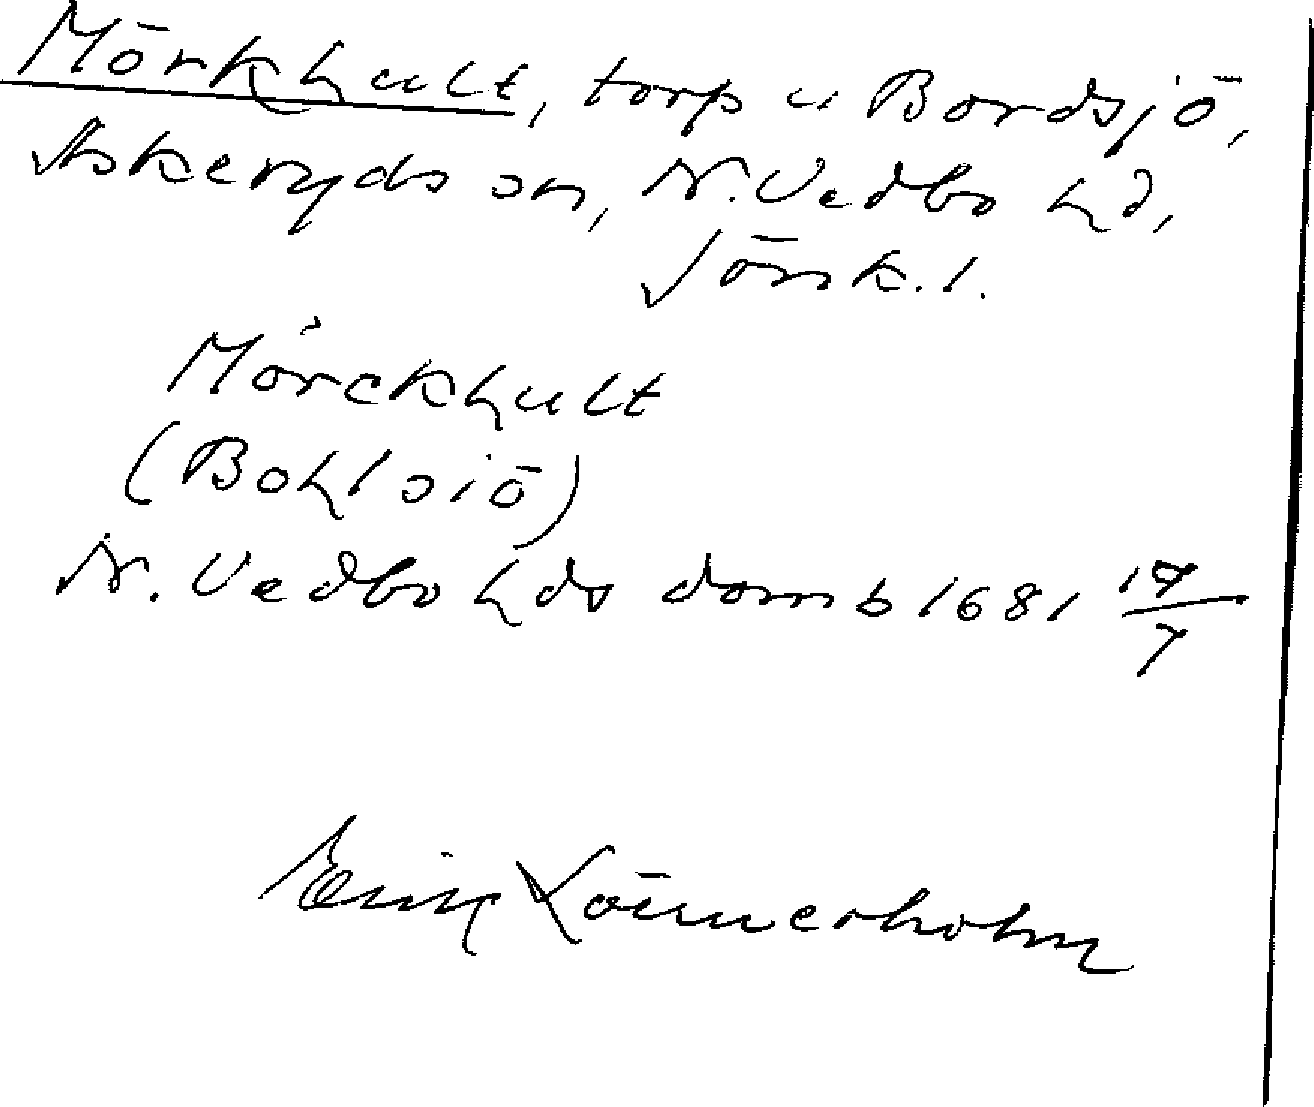 Mörkhult, torp u Bordsjö,
Askeryds sn, N. Vedbo hd,
Jönk. l.
Mörckhult
(Bohlsiö)
N. Vedbo hds domb 1681 17/7